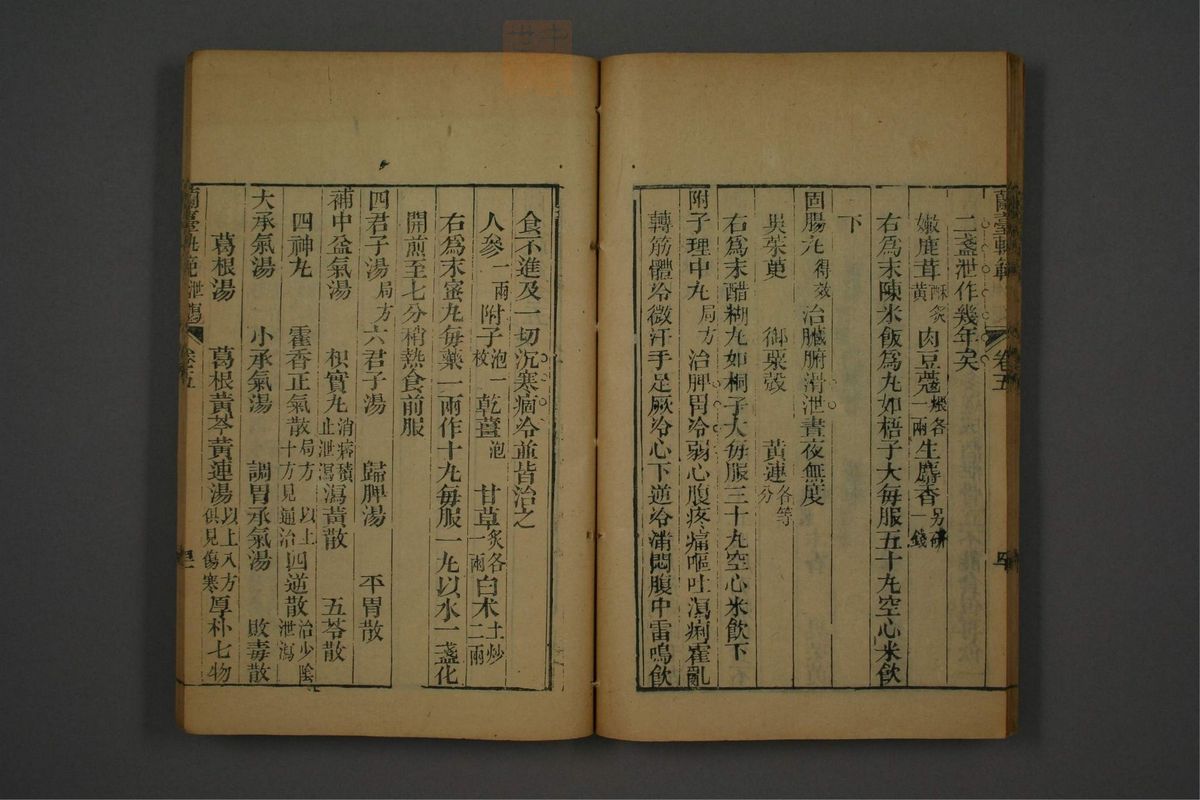 蘭臺軌範 卷五
二盞泄作幾年矣
嫩鹿茸酥炙黃肉豆蔻煨各一兩生麝香另研一錢
右爲末陳米飯爲丸如梧子大每服五十丸空心米飮
下
固腸丸得效治臟腑滑泄晝夜無度
吳茱萸 御粟殼 黃連各等分
右爲末醋糊丸如桐子大每服三十丸空心米飮下
附子理中丸局方治脾胃冷弱心腹疼痛嘔吐瀉痢霍亂
轉筋體冷微汗手足厥冷心下逆冷滿悶腹中雷鳴飮
食不進及一切沉寒痼冷並皆治之
人參一兩附子泡一枚乾薑泡 甘草炙各一兩白朮土炒二兩
右爲末蜜丸每藥一兩作十丸每服一丸以水一盞化
開煎至七分稍熱食前服
四君子湯局方六君子湯 歸脾湯 平胃散
補中益氣湯 枳實丸消痞積止泄瀉瀉黃散 五苓散
四神丸 霍香正氣散局方 以上十方見通治四逆散治少陰泄瀉
大承氣湯 小承氣湯 調胃承氣湯 敗毒散
葛根湯 葛根黃芩黃連湯以上八方俱見傷寒厚朴七物
蘭臺軌範 泄瀉 卷五